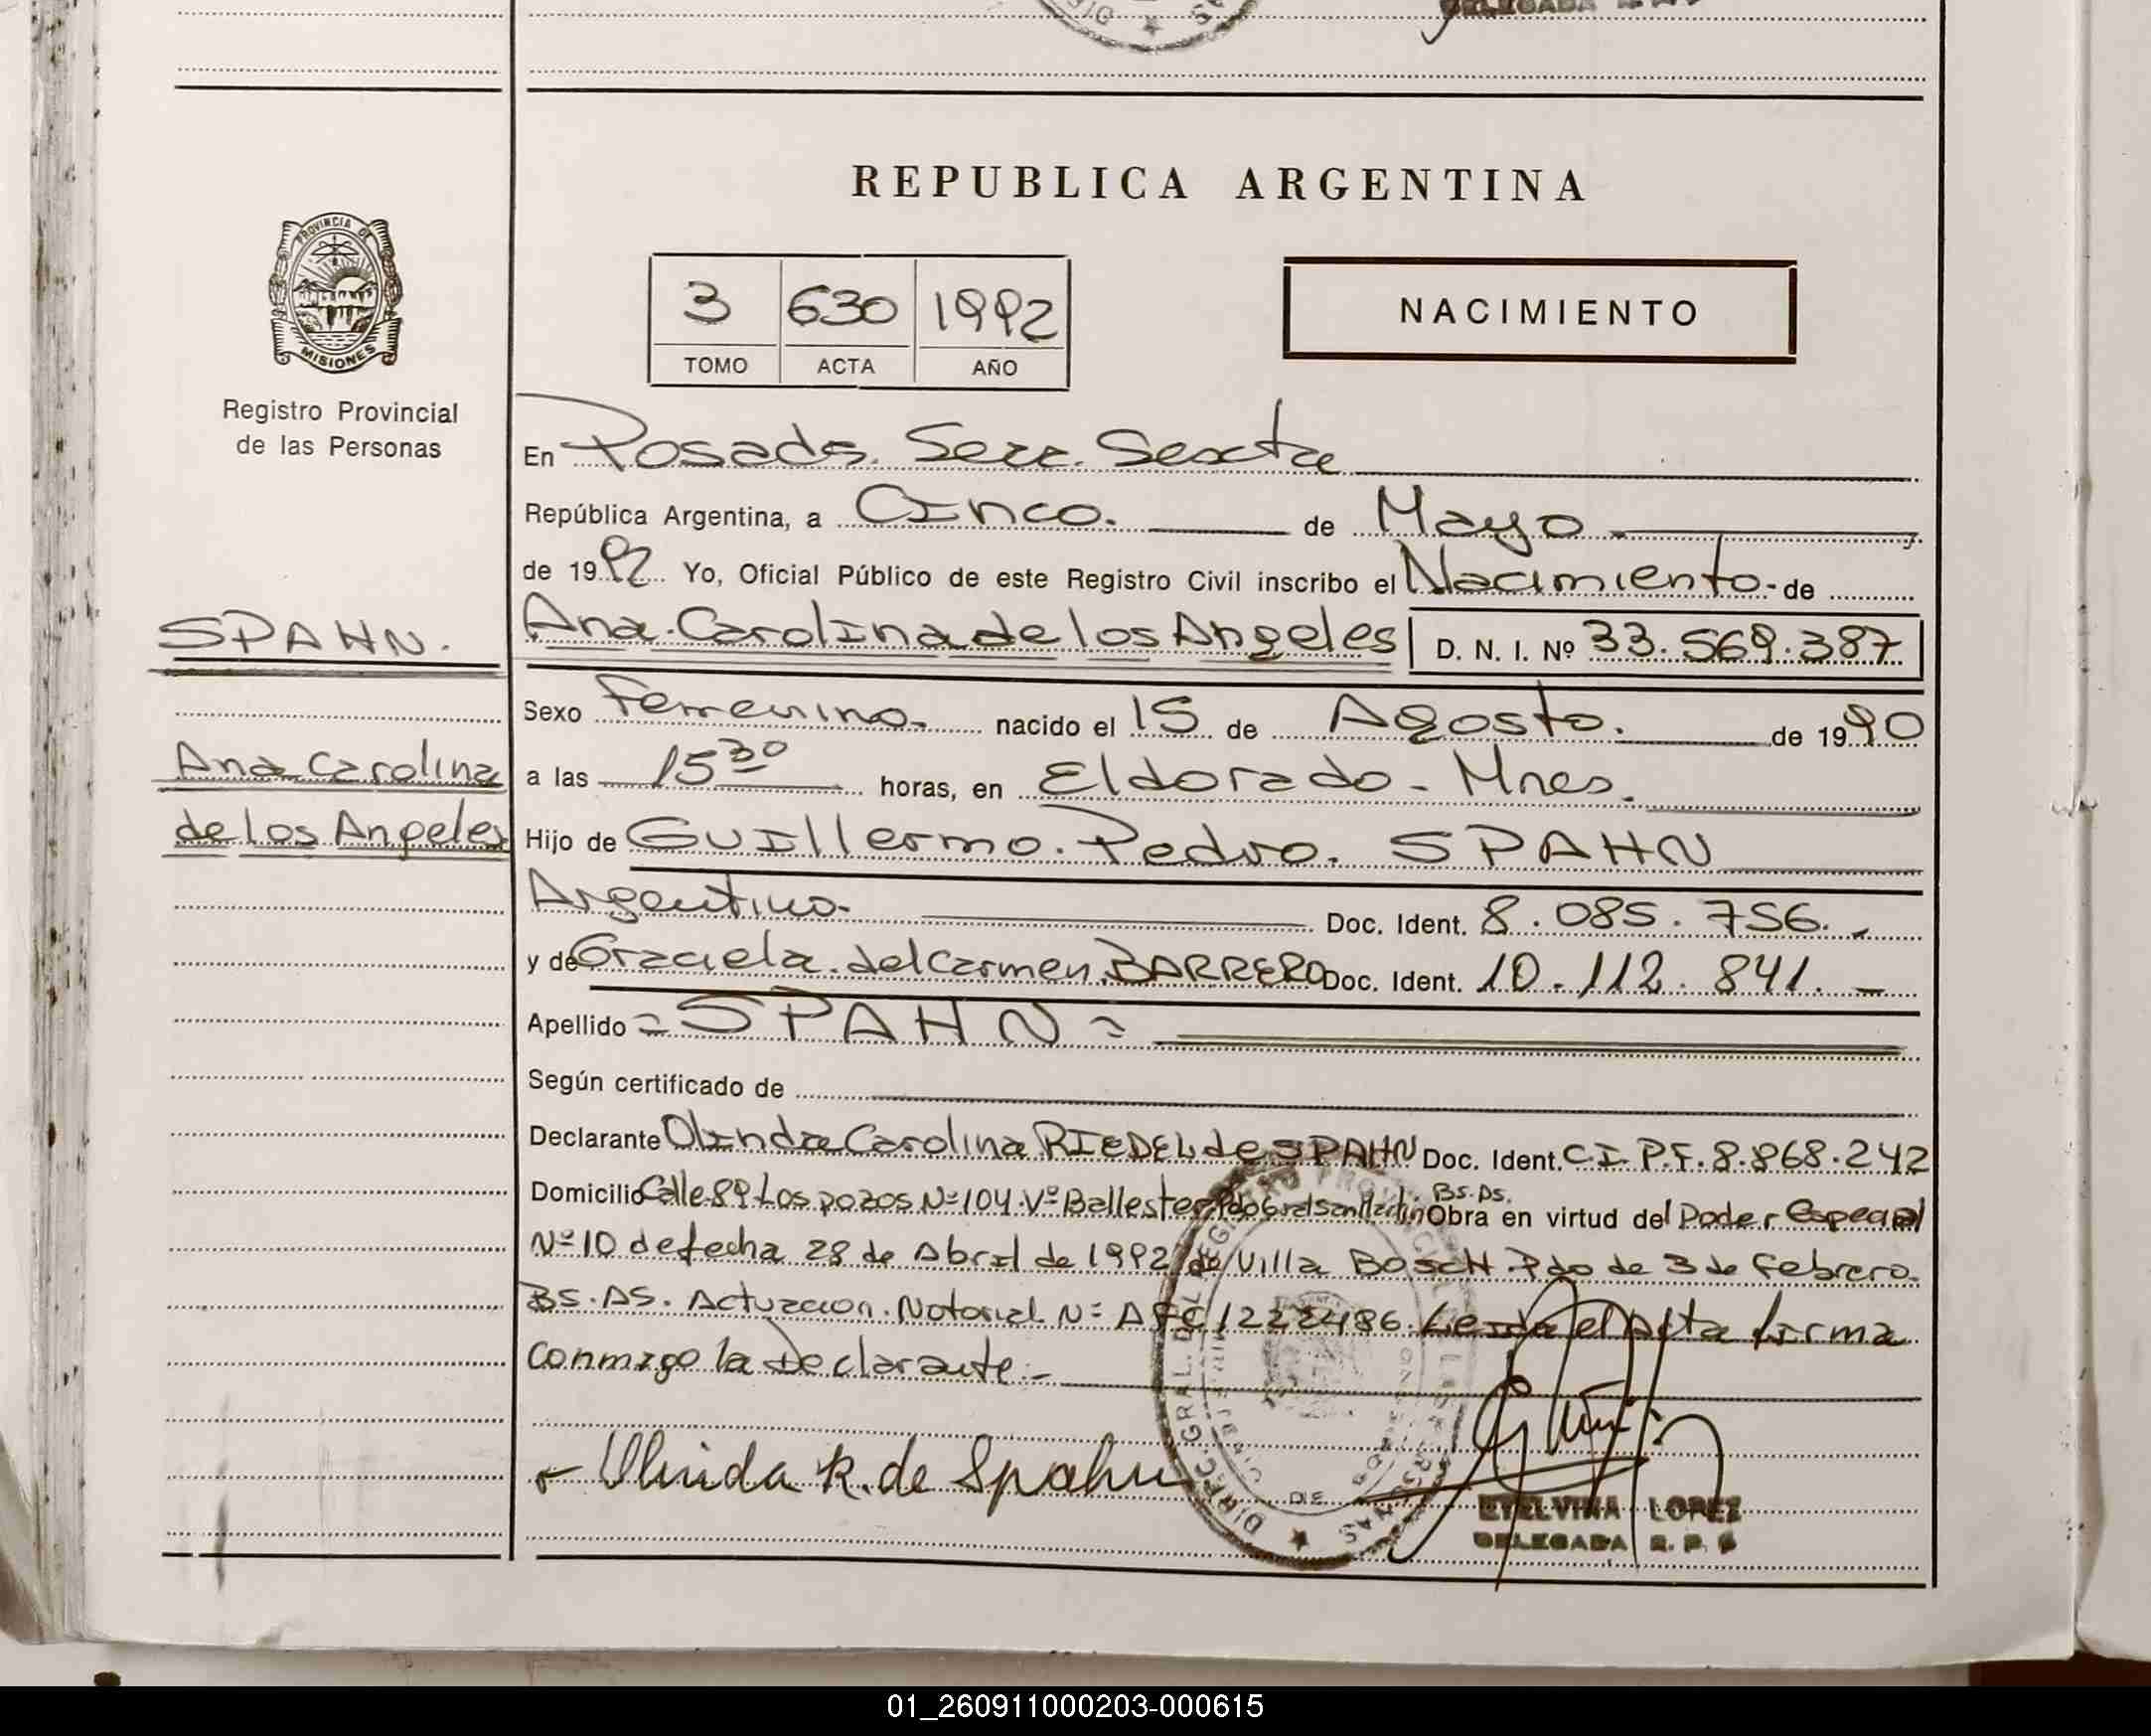 DELEGADA R.P.P.
REPUBLICA ARGENTINA
PROVINCIA DE
MISIONES
Registro Provincial
de las Personas
3 630 1992
TOMO ACTA AÑO
NACIMIENTO
En Posads. Secc. Sexta
República Argentina, a Cinco. de Mayo
de 1992 Yo, Oficial Público de este Registro Civil inscribo el Nacimiento- de
SPAHN.
Ana Carolina de los Angeles D. N. I. Nº 33.569.387
Sexo Femenino. nacido el 15 de Agosto. de 1990
Ana Carolina
de Los Angeles
a las 15 30 horas, en Eldorado - Mnes.
Hijo de Guillermo. Pedro. SPAHN
Argentino. Doc. Ident. 8.085.756.-
y de Graciela del Carmen BARRERO Doc. Ident. 10.112.841.-
Apellido = SPAHN =
Según certificado de
Declarante Olinda Carolina RIEDEL de SPAHN Doc. Ident. C.I. P.F. 8.868.242
Domicilio Calle 89 Los pozos Nº 104 Vª Ballester Pdo Gral San Martin Bs.As. Obra en virtud del Poder Especial
Nº 10 de fecha 28 de Abril de 1992 de Villa Bosch Pdo de 3 de Febrero.
BS.AS. Actuacion Notarial Nº 1222486. Leida el Acta firma
conmigo la Declarante.-
Olinda R. de Spahn
ETELVINA LOPEZ
DELEGADA R. P. P.
01_260911000203-000615